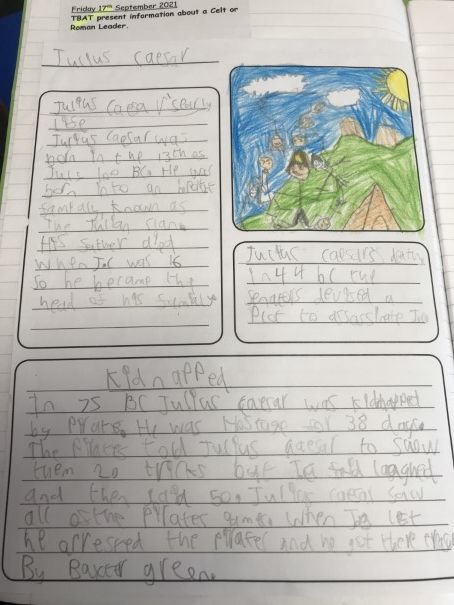 Friday 17th September 2021
TBAT present information about a Celt or
Roman Leader.
Julius Caesar
Julius Caesar's early
life
Julius Caesar was
born in the 13th of
July 100 BC. He was
born into an
family known as
The Julian clan.
His father died
when was 15
so he became the
head of his
Julius caesars death
In 44 bc the
senators devised a
Plot to assassinate
Kidnapped
In 75 BC Julius Caesar was kidnapped
by Pirate. He was Hostage for 38 days.
The Pirates told Julius Caesar to show
them 20 tricks but laughed
and then said 50. Julius Caesar saw
all of the Pirates games. When left
he arrested the Pirates and he got there
By Baxter green.